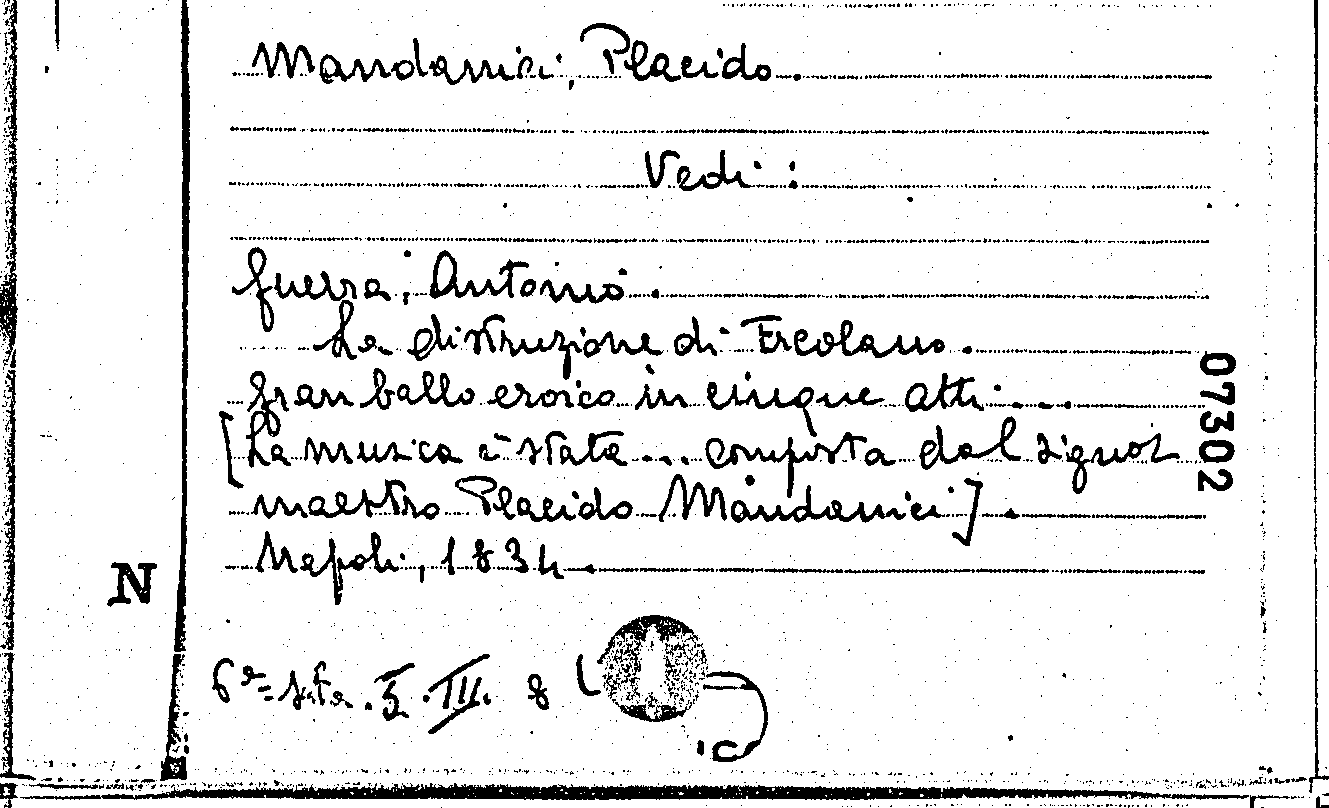 Mandanici, Placido.
Vedi:
Guerra, Antonio.
La distruzione di Ercolano.
Gran ballo eroico in cinque atti...
[La musica è stata... composta dal signor
maestro Placido Mandanici].
Napoli, 1834.
07302
N
III. 8